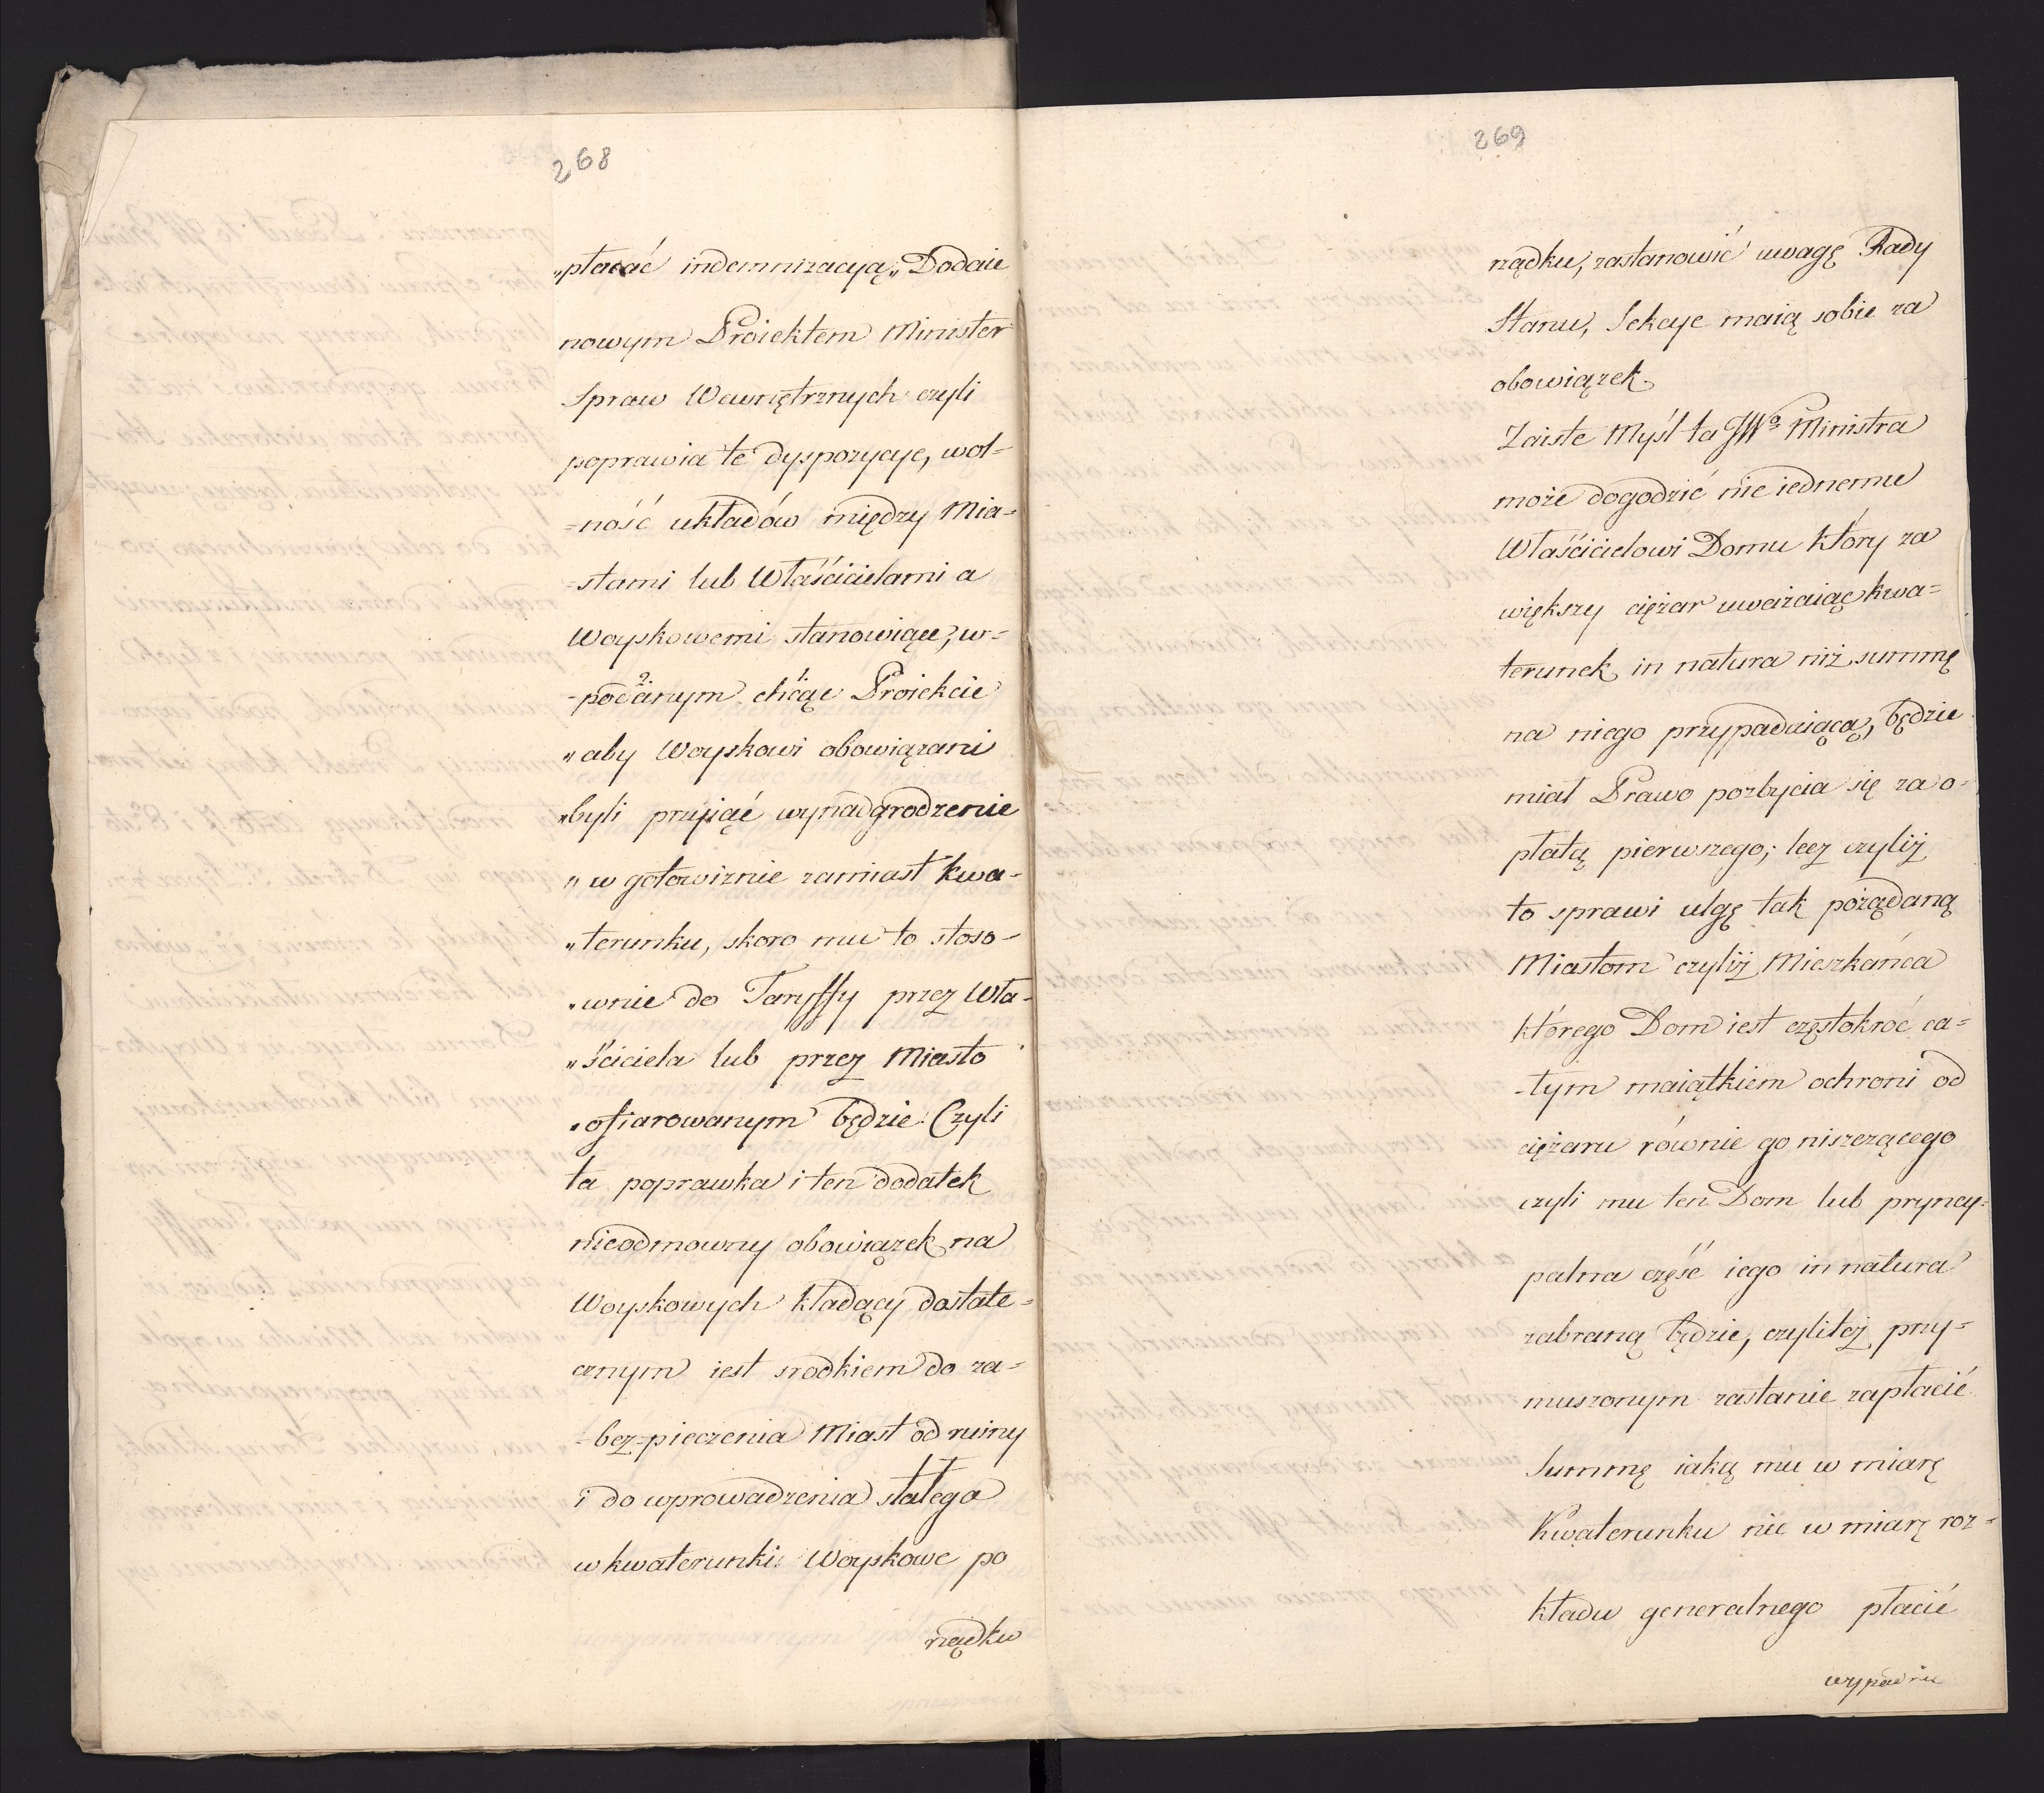 268
„płacać indemnizacyą„ Dodaie
nowym Proiektem Minister
Spraw Wewnętrznych czyli
poprawia te dyspozycye, wol-
=ność układów między Mia-
=stami lub Właścicielami a
Woyskowemi stanowiące, w-
-podanym chcąc Proiekcie
„aby Woyskowi obowiązani
„byli przyiąć wynadgrodzenie
„w gotowiznie zamiast kwa-
„terunku, skoro mu to stoso-
„wnie do Taryffy przez Wła-
„ściciela lub przez Miasto
„ofiarowanym będzie. Czyli
ta poprawka i ten dodatek
nieodmowny obowiązek na
Woyskowych kładący dostate=
cznym iest srodkiem do za-
-bez-pieczenia Miast od ruiny
i do wprowadzenia stałego
w kwaterunki Woyskowe po
rządku
269
rządku, zastanowić uwagę Rady
Stanu, Sekcye maią sobie za
obowiązek.
Zaiste Myśl ta JWo Ministra
może dogodzić nie iednemu
Właścicielowi Domu który za
większy ciężar uważaiąc kwa=
terunek in natura niż summę
na niego przypadaiącą, będzie
miał Prawo pozbycia się za o-
płatą pierwszego; lecz czyliż
to sprawi ulgę tak pożądaną
Miastom czyliż Mieszkańca
którego Dom iest częstokroć ca=
-łym maiątkiem ochroni od
ciężaru równie go niszczącego
czyli mu ten Dom lub pryncy=
palna część iego in natura
zabraną będzie, czyliteż przy=
muszonym zastanie zapłacić
Summę iaką mu w miarę
Kwaterunku nie w miarę roz=
kładu generalnego płacić
wypadnie